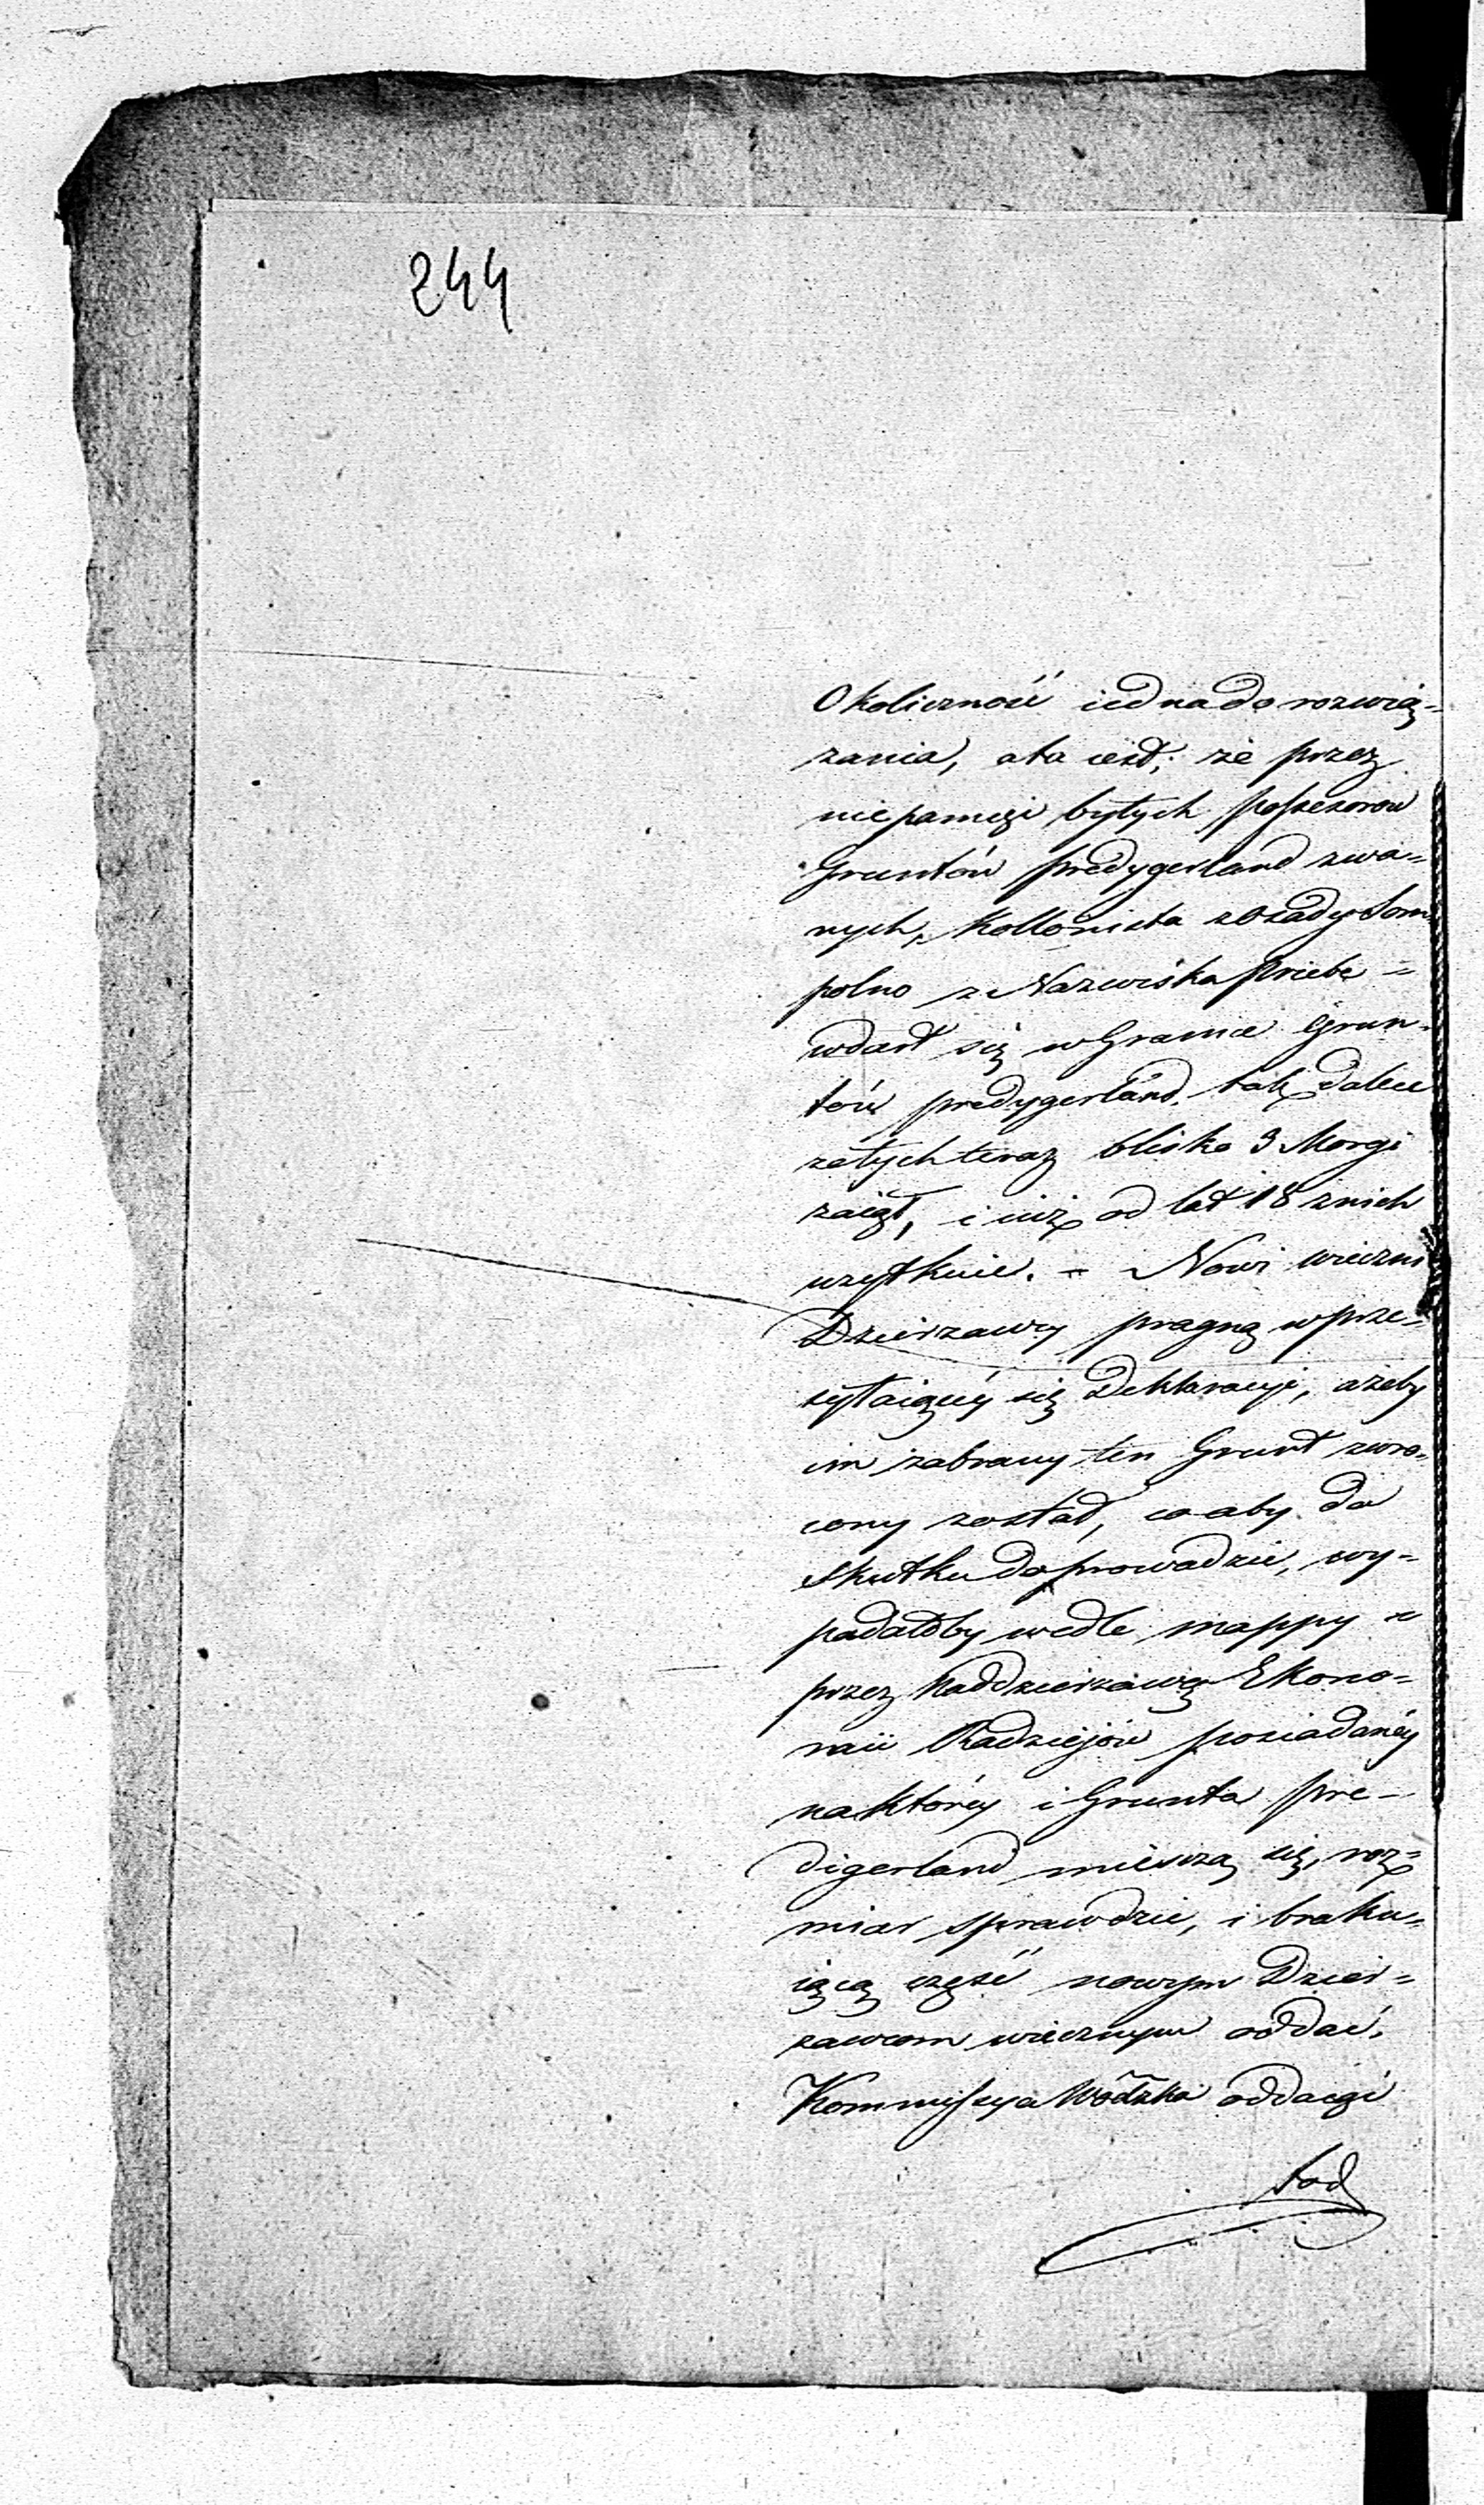 244
Okoliczność iedna do rozwią-
zania, a ta iest; że przez
niepamięć byłych possesorow
Gruntów predygerland zwa-
nych, Kollonista z osady Som
polno z Nazwiska Priebe =
wdarł się w Granice Grun-
tów predygerland, tak dalece
że tych teraz blisko 3 Morgi
zaiął, i iuż od lat 18 z nich
użytkuie. - Nowi wieczni
Dzierzawcy pragną w prze-
syłaiącéy się Deklaracyi, ażeby
im zabrany ten Grunt zwro-
cony został, co aby do
skutku doprowadzić, wy-
padałoby wedle mappy
przez Naddzierzawcę Ekono-
mii Radziejów posiadanéy
na któréy i Grunta pre-
digerland mieszczą się, roz-
miar sprawdzić, i braku-
iącą część nowym Dzier-
zawcom wiecznym oddać.
Kommissya Wodzka oddaiąc